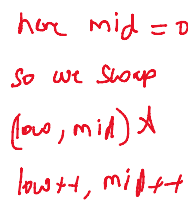 here mid = 0
so we swap
(low, mid) &
low++, mid++